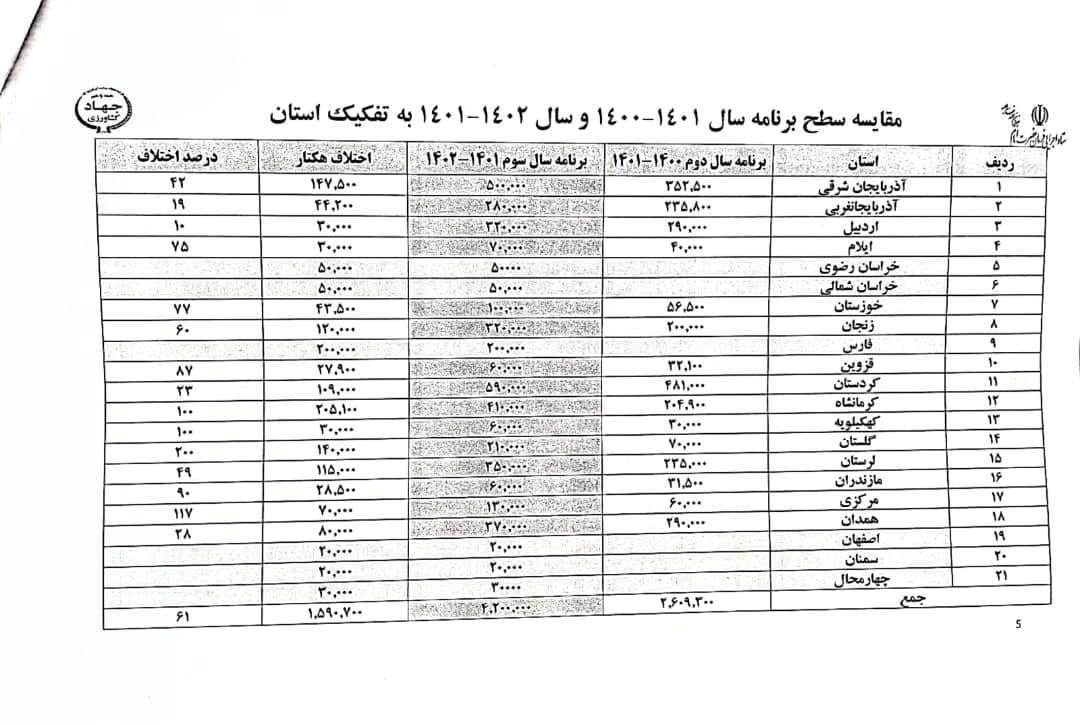 جهاد
کشاورزی
ستاد اجرایی فرمان حضرت امام
مقایسه سطح برنامه سال ۱۴۰۱-۱۴۰۰ و سال ۱۴۰۲-۱۴۰۱ به تفکیک استان
ردیف استان برنامه سال دوم ۱۴۰۰-۱۴۰۱ برنامه سال سوم ۱۴۰۱-۱۴۰۲ اختلاف هکتار درصد اختلاف
۱ آذربایجان شرقی ۳۵۲,۵۰۰ ۵۰۰,۰۰۰ ۱۴۷,۵۰۰ ۴۲
۲ آذربایجانغربی ۲۳۵,۸۰۰ ۲۸۰,۰۰۰ ۴۴,۲۰۰ ۱۹
۳ اردبیل ۲۹۰,۰۰۰ ۳۲۰,۰۰۰ ۳۰,۰۰۰ ۱۰
۴ ایلام ۴۰,۰۰۰ ۷۰,۰۰۰ ۳۰,۰۰۰ ۷۵
۵ خراسان رضوی ۵۰۰۰۰ ۵۰,۰۰۰
۶ خراسان شمالی ۵۰,۰۰۰ ۵۰,۰۰۰
۷ خوزستان ۵۶,۵۰۰ ۱۰۰,۰۰۰ ۴۳,۵۰۰ ۷۷
۸ زنجان ۲۰۰,۰۰۰ ۳۲۰,۰۰۰ ۱۲۰,۰۰۰ ۶۰
۹ فارس ۲۰۰,۰۰۰ ۲۰۰,۰۰۰
۱۰ قزوین ۳۲,۱۰۰ ۶۰,۰۰۰ ۲۷,۹۰۰ ۸۷
۱۱ کردستان ۴۸۱,۰۰۰ ۵۹۰,۰۰۰ ۱۰۹,۰۰۰ ۲۳
۱۲ کرمانشاه ۲۰۴,۹۰۰ ۴۱۰,۰۰۰ ۲۰۵,۱۰۰ ۱۰۰
۱۳ کهکیلویه ۳۰,۰۰۰ ۶۰,۰۰۰ ۳۰,۰۰۰ ۱۰۰
۱۴ گلستان ۷۰,۰۰۰ ۲۱۰,۰۰۰ ۱۴۰,۰۰۰ ۲۰۰
۱۵ لرستان ۲۳۵,۰۰۰ ۳۵۰,۰۰۰ ۱۱۵,۰۰۰ ۴۹
۱۶ مازندران ۳۱,۵۰۰ ۶۰,۰۰۰ ۲۸,۵۰۰ ۹۰
۱۷ مرکزی ۶۰,۰۰۰ ۱۳۰,۰۰۰ ۷۰,۰۰۰ ۱۱۷
۱۸ همدان ۲۹۰,۰۰۰ ۳۷۰,۰۰۰ ۸۰,۰۰۰ ۲۸
۱۹ اصفهان ۲۰,۰۰۰ ۲۰,۰۰۰
۲۰ سمنان ۲۰,۰۰۰ ۲۰,۰۰۰
۲۱ چهارمحال ۳۰۰۰۰ ۳۰,۰۰۰
جمع ۲,۶۰۹,۳۰۰ ۴,۲۰۰,۰۰۰ ۱,۵۹۰,۷۰۰ ۶۱
5